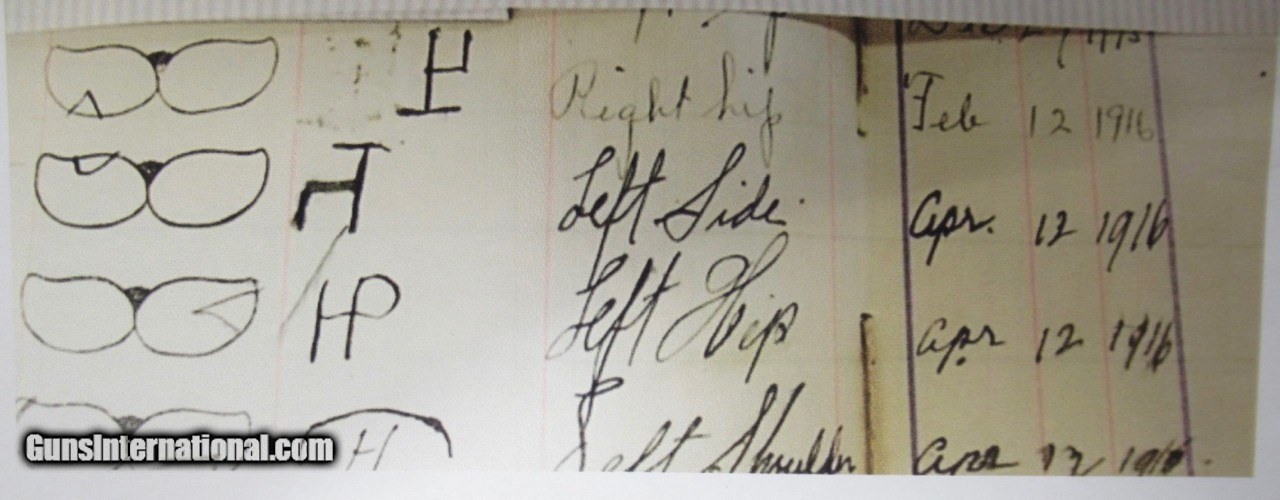 Right hip Feb 12 1916
Left Side. Apr. 12 1916
HP Left Hip Apr 12 1916
H Left Shoulder Apr 12 191
GunsInternational.com